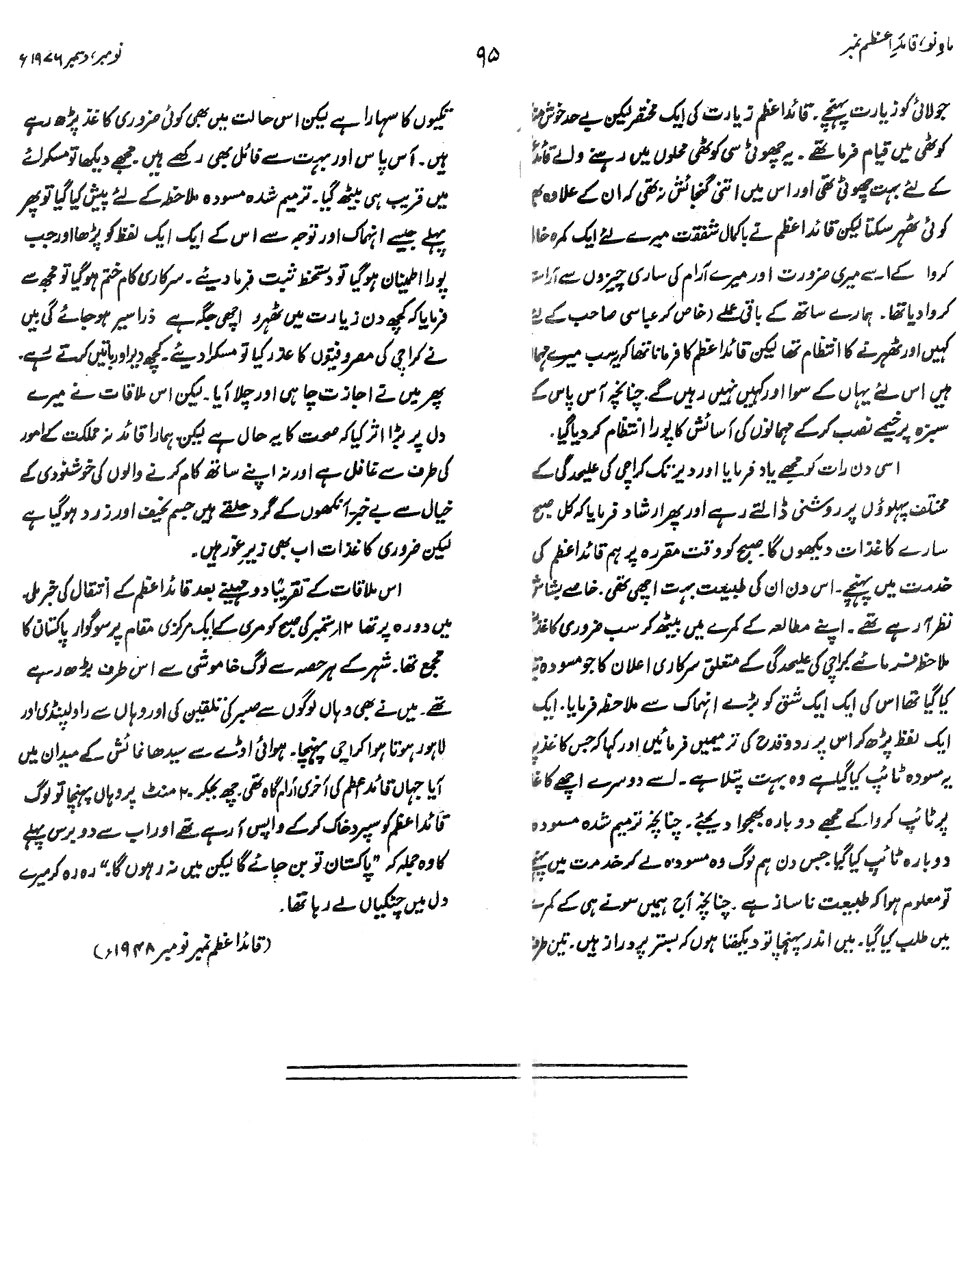 ماہ نو، قائد اعظم نمبر
۹۵
نومبر، دسمبر ۱۹۷۶ء
جولائی کو زیارت پہنچے۔ قائد اعظم زیارت کی ایک مختصر لیکن بے حد خوش
کوٹھی میں قیام فرما تھے۔ یہ چھوٹی سی کوٹھی محلوں میں رہنے والے قائد
کے لئے بہت چھوٹی تھی اور اس میں اتنی گنجائش نہ تھی کہ ان کے علاوہ
کوئی ٹھہر سکتا لیکن قائد اعظم نے باکمال شفقت میرے لئے ایک کمرہ
کروا کے اسے میری ضرورت اور میرے آرام کی ساری چیزوں سے آراستہ
کروا دیا تھا۔ ہمارے ساتھ کے باقی عملے (خاص کر عباسی صاحب کے لئے
کہیں اور ٹھہرنے کا انتظام تھا لیکن قائد اعظم کا فرمانا تھا کہ یہ سب میرے
ہیں اس لئے یہاں کے سوا اور کہیں نہیں رہیں گے۔ چنانچہ آس پاس کے
سبزہ پر خیمے نصب کر کے مہمانوں کی آسائش کا پورا انتظام کر دیا گیا۔
اسی دن رات کو مجھے یاد فرمایا اور دیر تک کراچی کی علیحدگی کے
مختلف پہلوؤں پر روشنی ڈالتے رہے اور پھر ارشاد فرمایا کہ کل صبح
سارے کاغذات دیکھوں گا۔ صبح کو وقت مقررہ پر ہم قائد اعظم کی
خدمت میں پہنچے۔ اس دن ان کی طبیعت بہت اچھی تھی۔ خاصے بشاش
نظر آ رہے تھے۔ اپنے مطالعہ کے کمرے میں بیٹھ کر سب ضروری کاغذ
ملاحظہ فرمائے کراچی کی علیحدگی کے متعلق سرکاری اعلان کا جو مسودہ
کیا گیا تھا اس کی ایک ایک شق کو بڑے انہماک سے ملاحظہ فرمایا۔ ایک
ایک لفظ پڑھ کر اس پر ردو قدح کی ترمیمیں فرمائیں اور کہا کہ جس کاغذ پر
یہ مسودہ ٹائپ کیا گیا ہے وہ بہت پتلا ہے۔ اسے دوسرے اچھے
پر ٹائپ کروا کے مجھے دوبارہ بھجوا دیجئے۔ چنانچہ ترمیم شدہ مسودہ
دوبارہ ٹائپ کیا گیا جس دن ہم لوگ وہ مسودہ لے کر خدمت میں پہنچے
تو معلوم ہوا کہ طبیعت ناساز ہے۔ چنانچہ آج ہمیں سونے ہی کے کمرے
میں طلب کیا گیا۔ میں اندر پہنچا تو دیکھتا ہوں کہ بستر پر دراز ہیں۔ تین طرف
تکیوں کا سہارا ہے لیکن اس حالت میں بھی کوئی ضروری کاغذ پڑھ رہے
ہیں۔ آس پاس اور بہت سے فائل بھی رکھے ہیں۔ مجھے دیکھا تو مسکرائے
میں قریب ہی بیٹھ گیا۔ ترمیم شدہ مسودہ ملاحظہ کے لئے پیش کیا گیا تو پھر
پہلے جیسے انہماک اور توجہ سے اس کے ایک ایک لفظ کو پڑھا اور جب
پورا اطمینان ہو گیا تو دستخط ثبت فرما دیئے۔ سرکاری کام ختم ہو گیا تو مجھ سے
فرمایا کہ کچھ دن زیارت میں ٹھہرو اچھی جگہ ہے ذرا سیر ہو جائے گی میں
نے کراچی کی مصروفیتوں کا عذر کیا تو مسکرا دیئے۔ کچھ دیر اور باتیں کرتے رہے۔
پھر میں نے اجازت چاہی اور چلا آیا۔ لیکن اس ملاقات نے میرے
دل پر بڑا اثر کیا کہ صحت کا یہ حال ہے لیکن ہمارا قائد نہ مملکت کے امور
کی طرف سے غافل ہے اور نہ اپنے ساتھ کام کرنے والوں کی خوشنودی کے
خیال سے بے خبر۔ آنکھوں کے گرد حلقے ہیں جسم نحیف اور زرد ہو گیا ہے
لیکن ضروری کاغذات اب بھی زیر غور ہیں۔
اس ملاقات کے تقریباً دو مہینے بعد قائد اعظم کے انتقال کی خبر ملی۔
میں دورہ پر تھا ۱۲ ستمبر کی صبح کو مری کے ایک مرکزی مقام پر سوگوار پاکستان کا
مجمع تھا۔ شہر کے ہر حصہ سے لوگ خاموشی سے اس طرف بڑھ رہے
تھے۔ میں نے بھی وہاں لوگوں سے صبر کی تلقین کی اور وہاں سے راولپنڈی اور
لاہور ہوتا ہوا کراچی پہنچا۔ ہوائی اڈے سے سیدھا نمائش کے میدان میں
آیا جہاں قائد اعظم کی آخری آرام گاہ تھی۔ چھ بجکر ۲۰ منٹ پر وہاں پہنچا تو لوگ
قائد اعظم کو سپرد خاک کر کے واپس آ رہے تھے اور اب سے دو برس پہلے
کا وہ جملہ کہ "پاکستان تو بن جائے گا لیکن میں نہ رہوں گا۔" رہ رہ کر میرے
دل میں چٹکیاں لے رہا تھا۔
(قائد اعظم نمبر نومبر ۱۹۴۸ء)